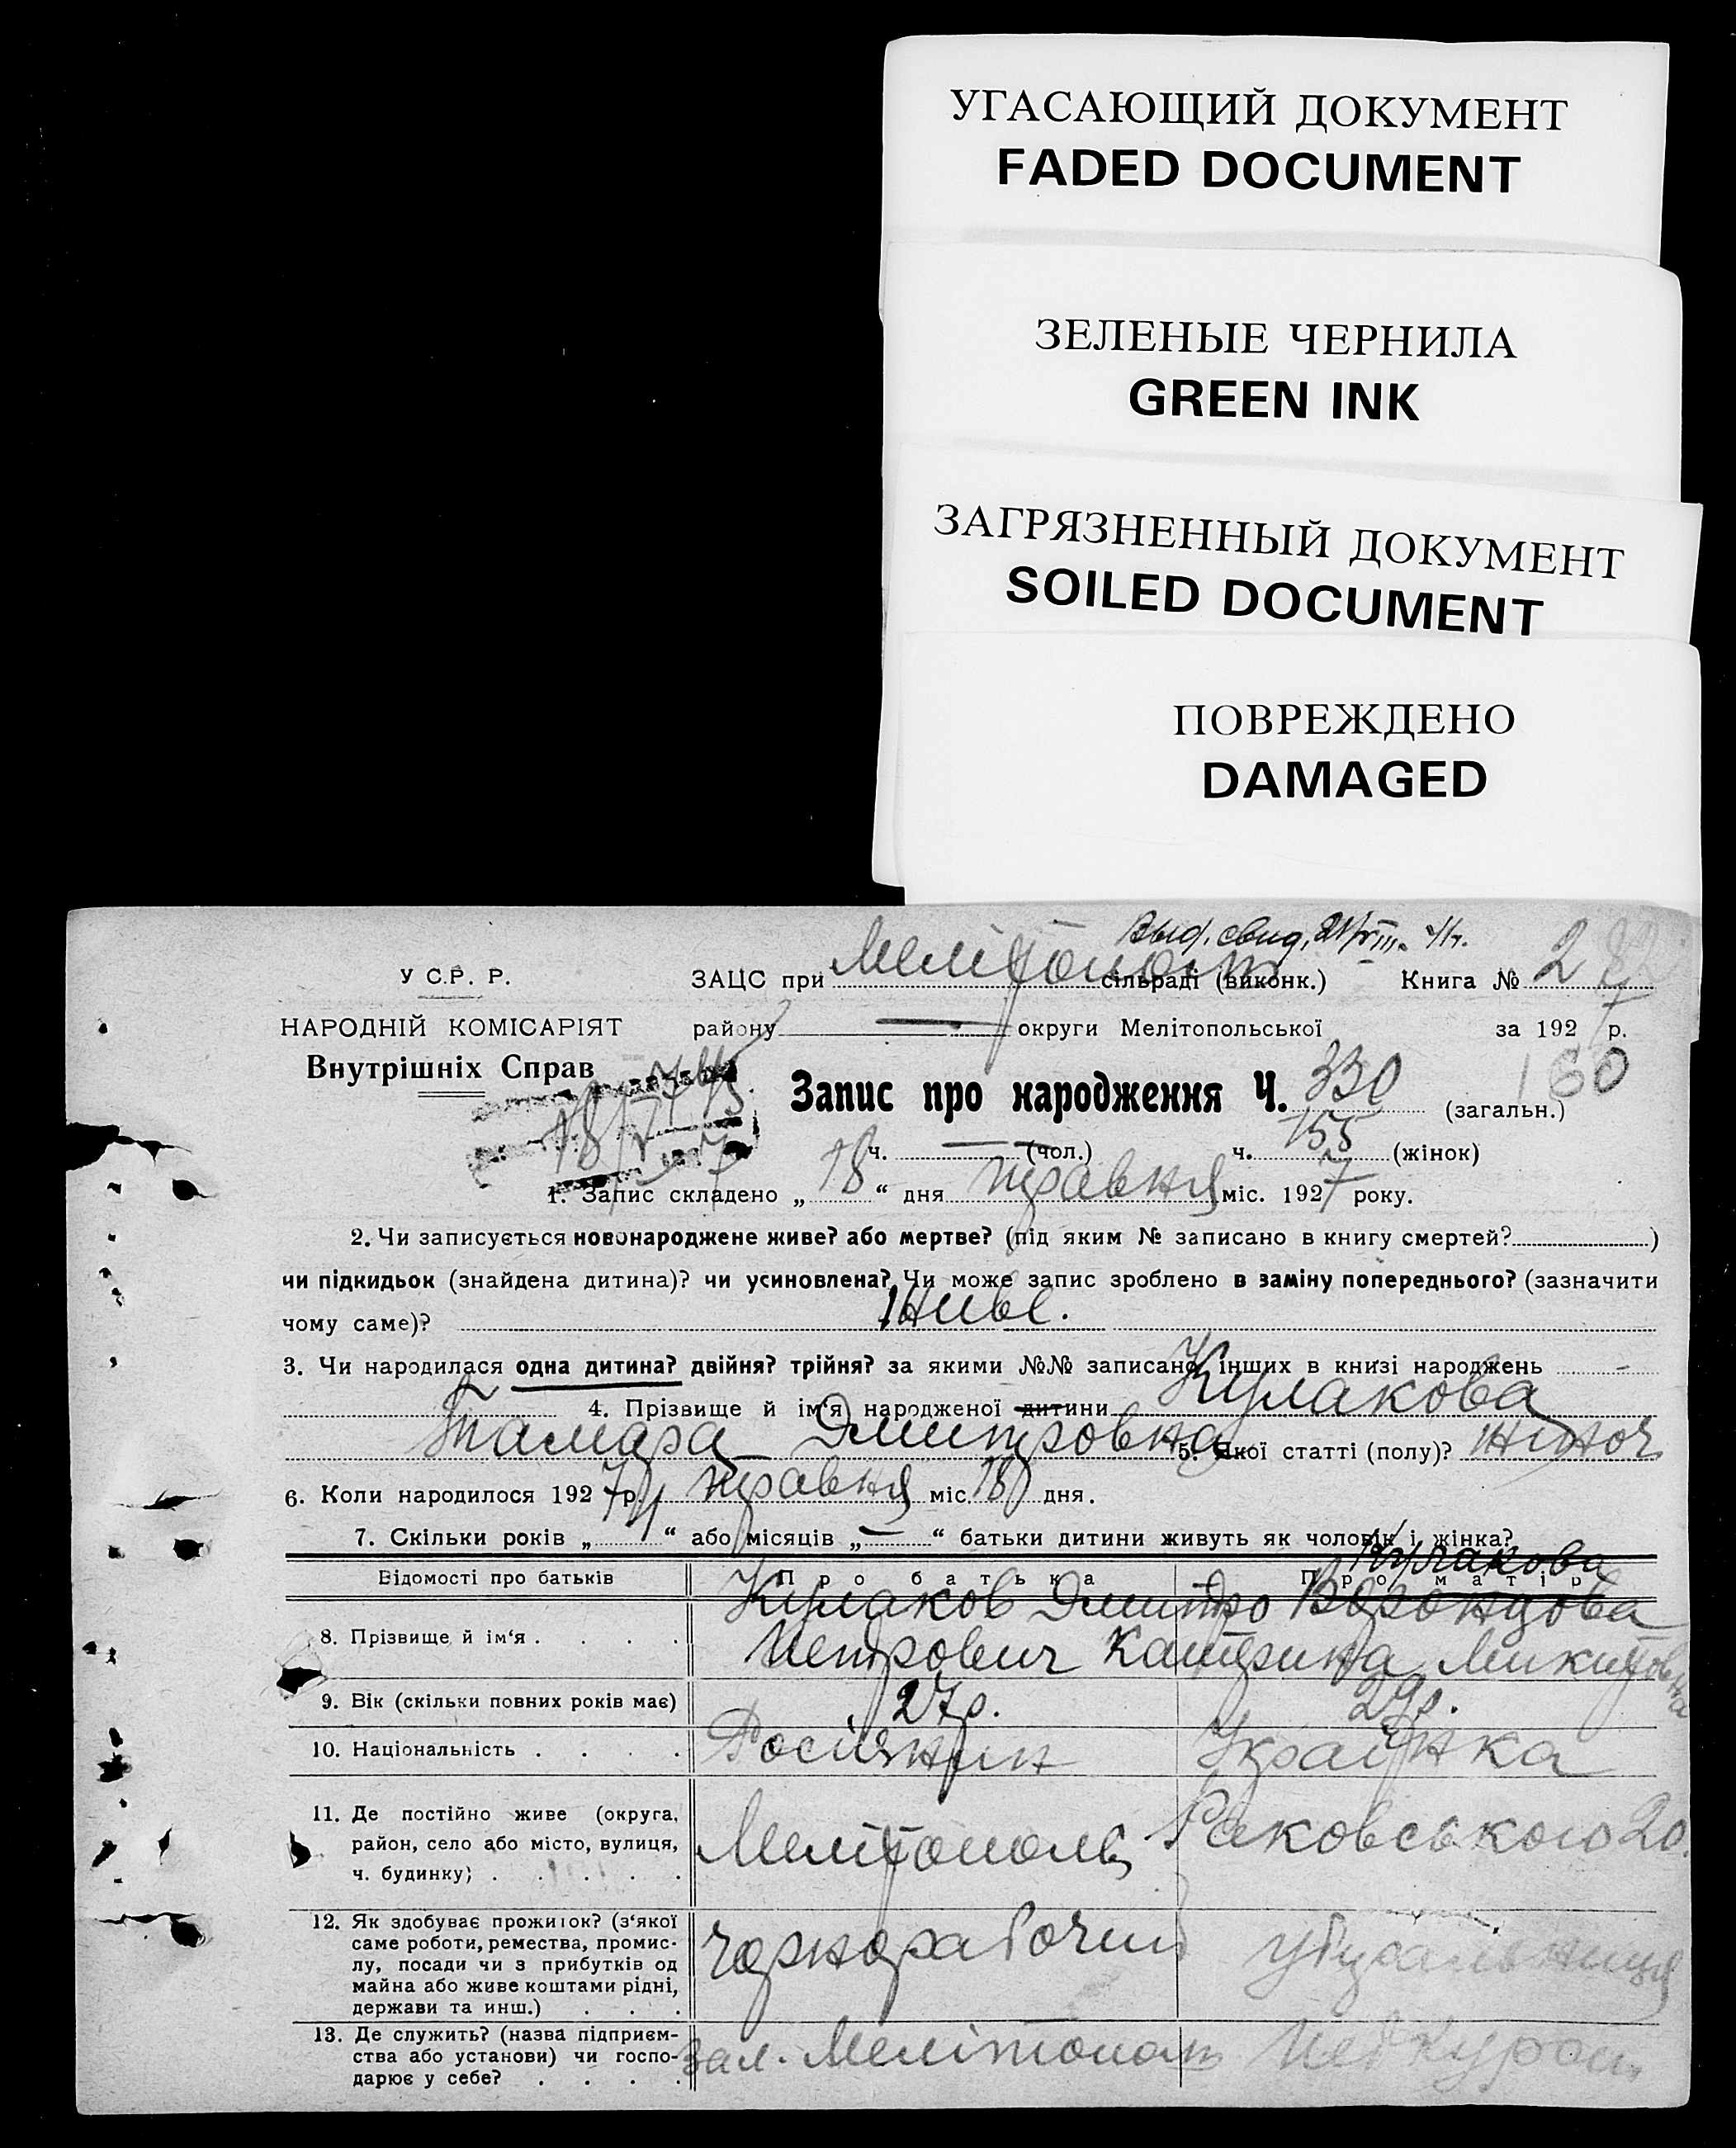 УГАСАЮЩИЙ ДОКУМЕНТ
FADED DOCUMENT
ЗЕЛЕНЫЕ ЧЕРНИЛА
GREEN INK
ЗАГРЯЗНЕННЫЙ ДОКУМЕНТ
SOILED DOCUMENT
ПОВРЕЖДЕНО
DAMAGED
Выд. свид. 21/VIII
У С.Р. Р. ЗАЦС при Мелітополь сільраді (виконк.) Книга № 2
НАРОДНІЙ КОМІСАРІЯТ району — округи Мелітопольської за 1927 р.
Внутрішніх Справ
160
Запис про народження Ч. 330 (загальн.)
ч. — (чол.) ч. 155 (жінок)
1. Запис складено „18“ дня травня міс. 1927 року.
2. Чи записується новонароджене живе? або мертве? (під яким № записано в книгу смертей? )
чи підкидьок (знайдена дитина)? чи усиновлена? Чи може запис зроблено в заміну попереднього? (зазначити
чому саме)? Живе.
3. Чи народилася одна дитина? двійня? трійня? за якими №№ записано інших в книзі народжень —
4. Прізвище й ім‘я народженої дитини Кулакова
Тамара Дмитровна 5. Якої статті (полу)? жіноч
6. Коли народилося 1927 р. травня міс. 18 дня.
7. Скільки років „ “ або місяців „—“ батьки дитини живуть як чоловік і жінка?
Кулакова
Відомості про батьків Про батька Про матір
Кулаков Дмитро Воронцова
8. Прізвище й ім‘я . . . . Петрович Катерина Микитовна
9. Вік (скільки повних років має) 27 р. 29 р.
10. Національність . . . . Росіянин Українка
11. Де постійно живе (округа,
район, село або місто, вулиця, Мелітополь Раковського 20.
ч. будинку) . . . . .
12. Як здобуває прожиток? (з‘якої
саме роботи, ремества, промис-
лу, посади чи з прибутків од чорнорабочий
майна або живе коштами рідні,
держави та инш.) . . .
13. Де служить? (назва підприєм-
ства або установи) чи госпо- зал. Мелітополь
дарює у себе? . . . .